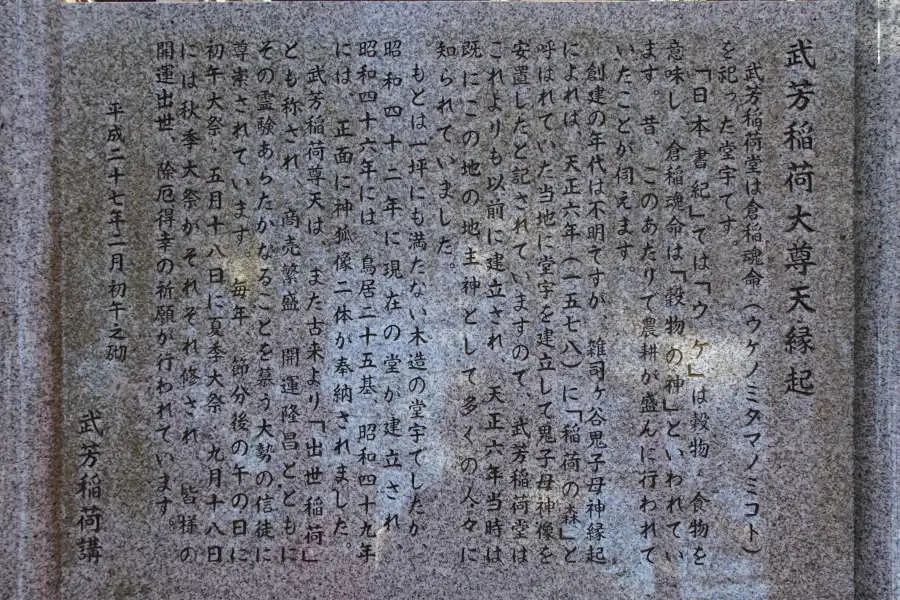 武芳稲荷大尊天縁起
武芳稲荷堂は倉稲魂命（ウケノミタマノミコト）
を祀った堂宇です。
「日本書紀」では「ウケ」は穀物・食物を
意味し、倉稲魂命は「穀物の神」といわれてい
ます。昔、このあたりで農耕が盛んに行われて
いたことが伺えます。
創建の年代は不明ですが、雑司ヶ谷鬼子母神縁起
によれば、天正六年（一五七八）に「稲荷の森」と
呼ばれていた当地に堂宇を建立して鬼子母神像を
安置したと記されていますので、武芳稲荷堂は
これよりも以前に建立され、天正六年当時は
既にこの地の地主神として多くの人々に
知られていました。
もとは一坪にも満たない木造の堂宇でしたが、
昭和四十二年に現在の堂が建立され、
昭和四十六年には、鳥居二十五基、昭和四十九年
には、正面に神狐像二体が奉納されました。
武芳稲荷尊天は、また古来より「出世稲荷」
とも称され、商売繁盛・開運隆昌とともに
その霊験あらたかなることを慕う大勢の信徒に
尊崇されています。毎年、節分後の午の日に
初午大祭・五月十八日に夏季大祭、九月十八日
には秋季大祭がそれぞれ修され、皆様の
開運出世、除厄得幸の祈願が行われています。
平成二十七年二月初午之砌
武芳稲荷講